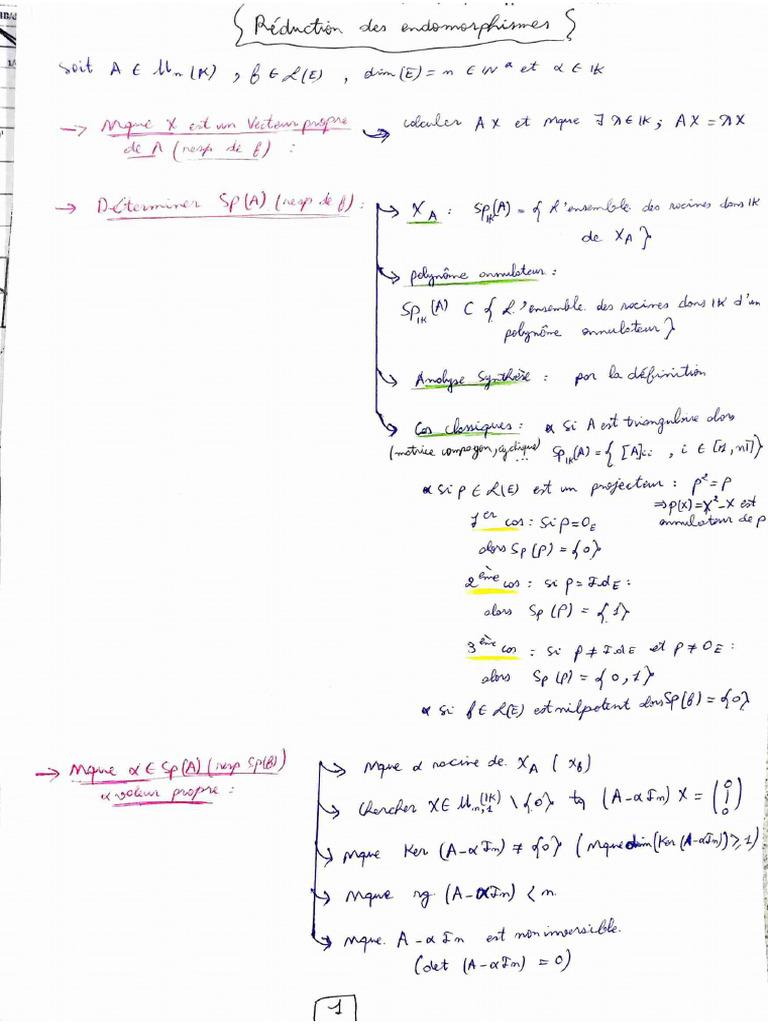 Réduction des endomorphismes
Soit A ∈ Mn(K) , f ∈ L(E) , dim(E) = n ∈ IN* et α ∈ IK
→ Mque X est un Vecteur propre de A (resp de f) :
→ calculer AX et mque ∃ λ ∈ IK ; AX = λX
→ Déterminer Sp(A) (resp de f) :
→ XA : Sp_IK(A) = { L'ensemble des racines dans IK
de XA }
→ polynôme annulateur :
Sp_IK(A) ⊂ { L'ensemble des racines dans IK d'un
polynôme annulateur }
→ Analyse Synthèse : par la définition
→ Cas classiques : * Si A est triangulaire alors
(matrice compagon, cyclique) ... Sp_IK(A) = { [A]ii , i ∈ [[1, n]] }
* Si p ∈ L(E) est un projecteur : p² = p
⇒ p(x) = X² - X est
annulateur de p
1er cas : Si p = 0E
alors Sp(p) = {0}
2ème cas : si p = IdE :
alors Sp(p) = {1}
3ème cas : si p ≠ IdE et p ≠ 0E :
alors Sp(p) = {0,1}
* Si f ∈ L(E) est nilpotent alors Sp(f) = {0}
→ Mque α ∈ Sp(A) (resp Sp(f))
α valeur propre :
→ Mque α racine de XA (Xf)
→ Chercher X ∈ Mn,1(IK) \ {0} tq (A - αIn) X = (0 ⋮ 0)
→ Mque Ker (A - αIn) ≠ {0} (Mque dim(Ker(A - αIn)) ≥ 1)
→ Mque rg (A - αIn) < n
→ Mque. A - αIn est non inversible.
(det (A - αIn) = 0)
1